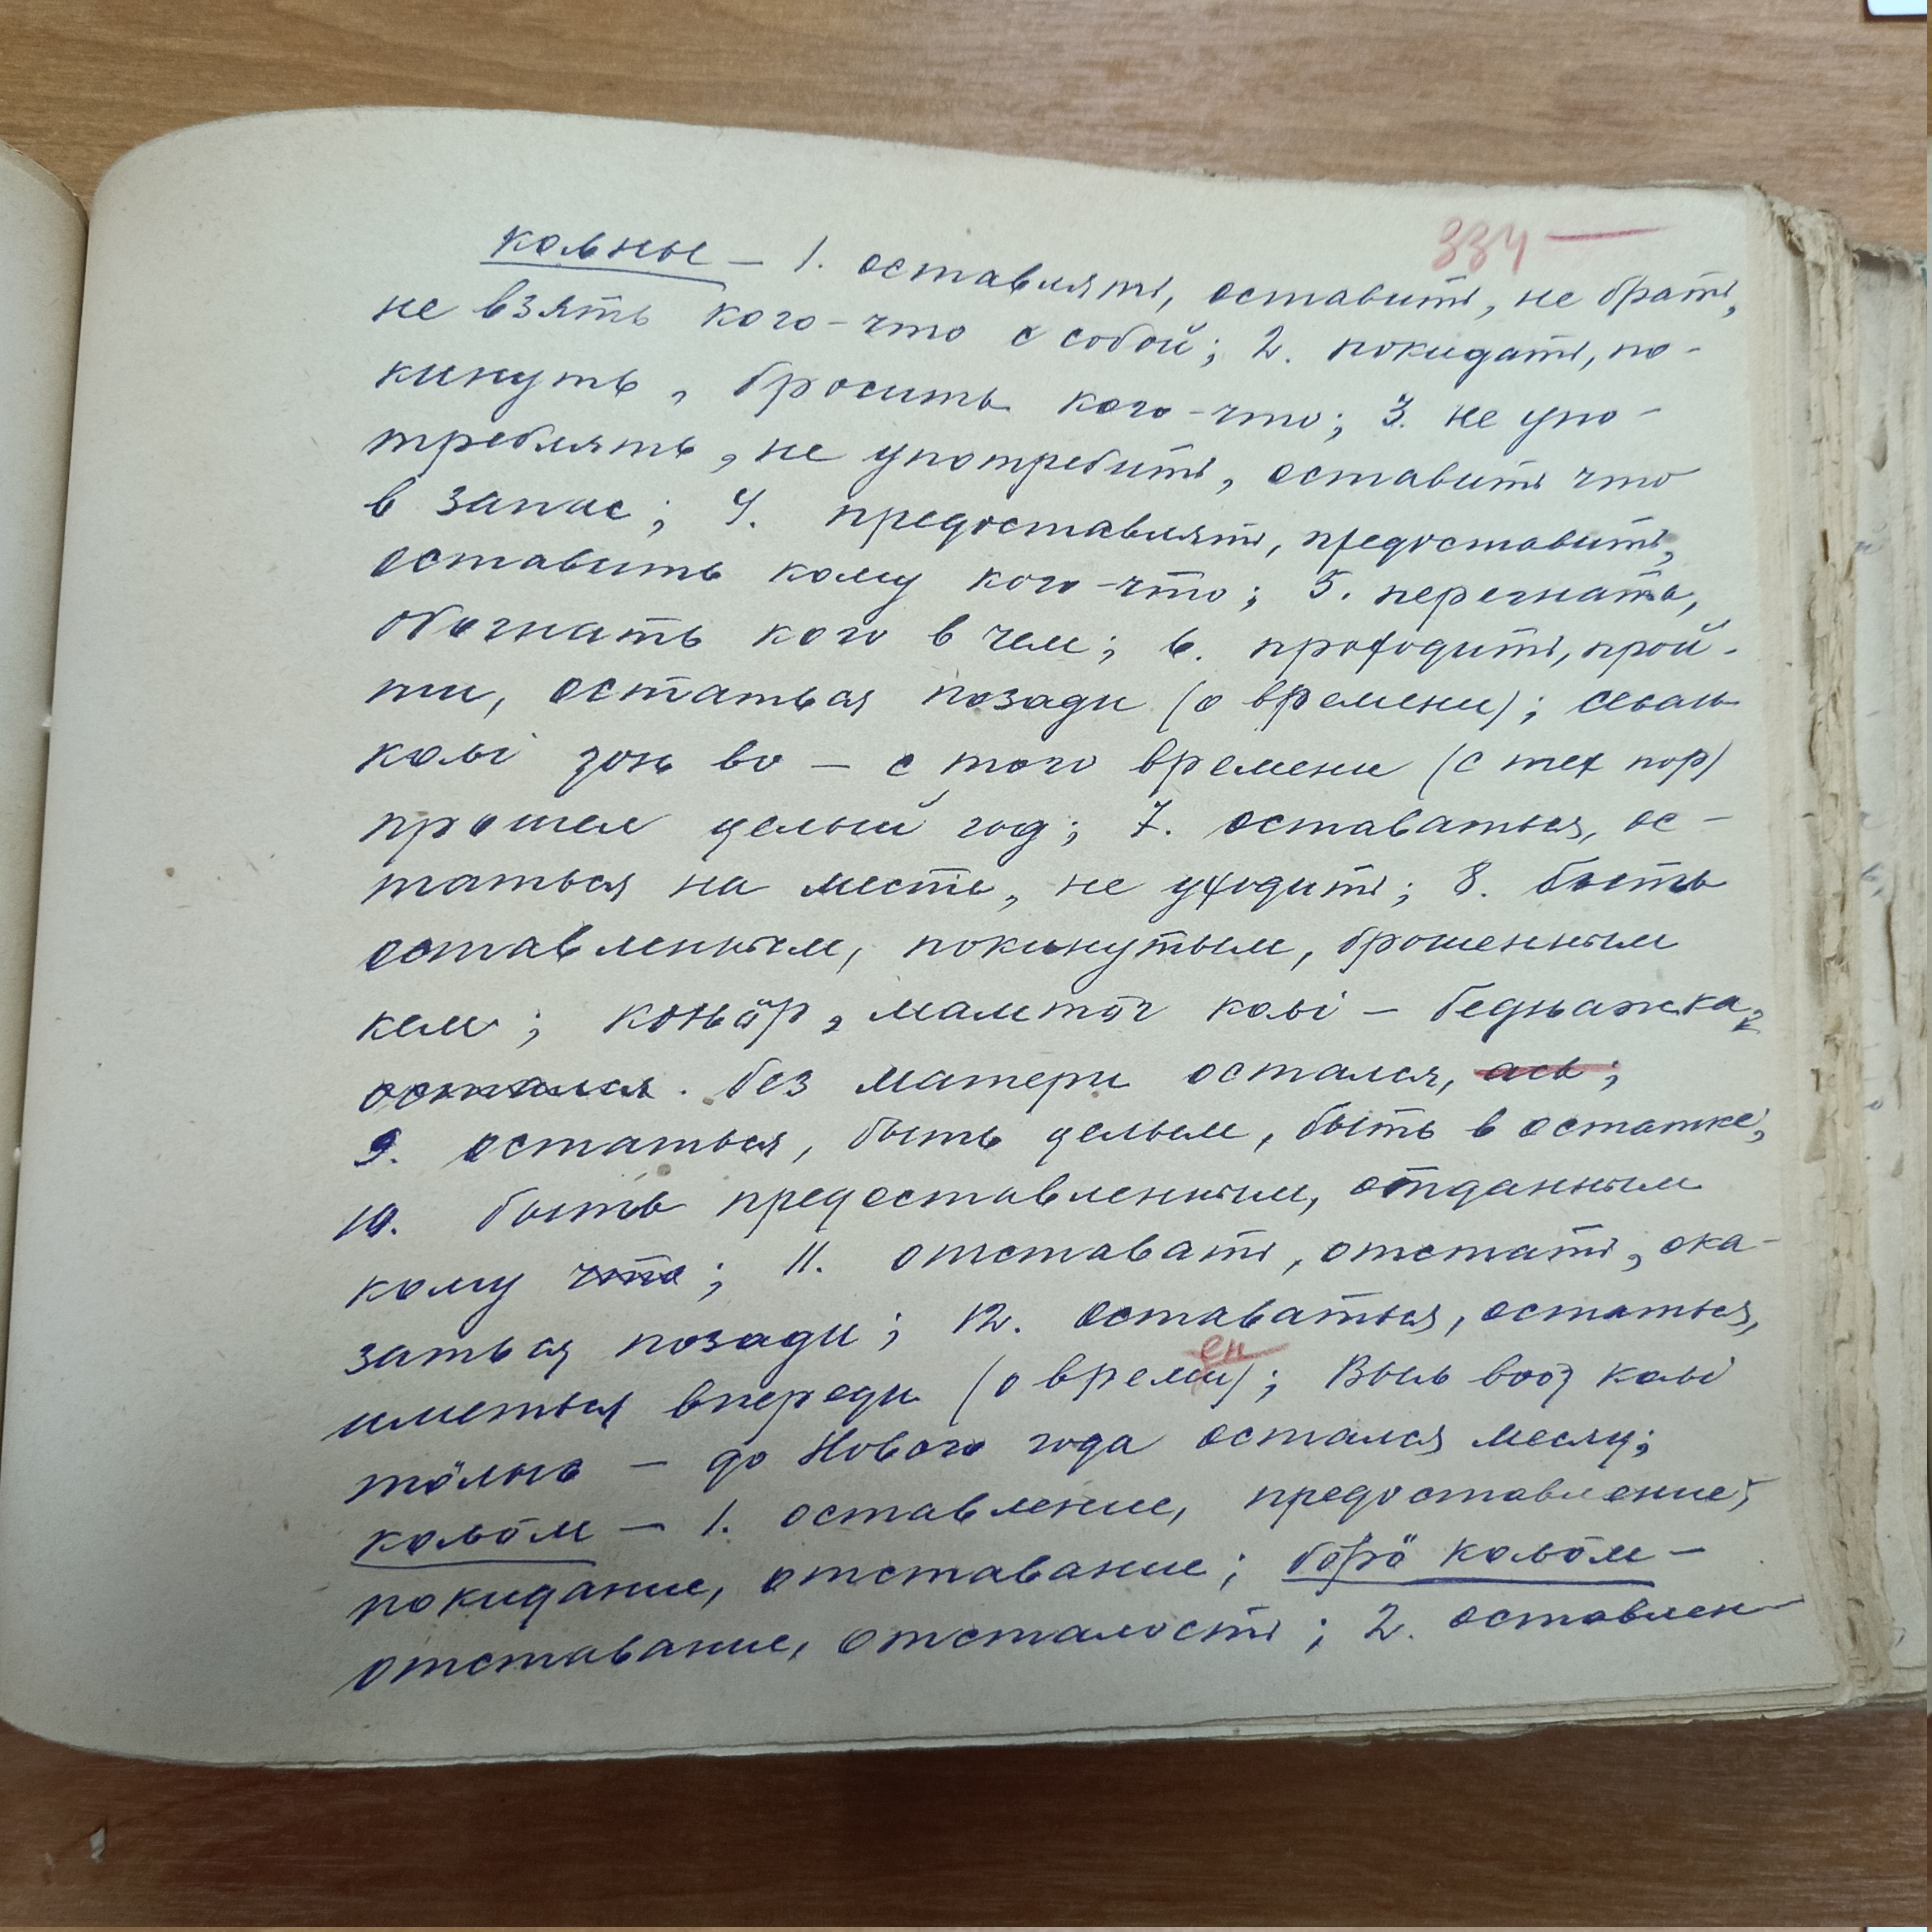 334 —
кольны – 1. оставлять, оставить, не брать,
не взять кого-что с собой; 2. покидать, по-
кинуть, бросить кого-что; 3. не упо-
треблять, не употребить, оставить что
в запас; 4. предоставлять, предоставить,
оставить кому кого-что; 5. перегнать,
обогнать кого в чем; 6. проходить, прой-
ти, остаться позади (о времени); сесань
колі зонь во – с того времени (с тех пор)
прошел целый год; 7. оставаться, ос-
таться на месте, не уходить; 8. быть
оставленным, покинутым, брошенным
кем; коньöр, мамтöг колі – бедняжка,
остался. без матери остался, ась;
9. остаться, быть целым, быть в остатке;
10. быть предоставленным, отданным
кому что; 11. отставать, отстать, ока-
заться позади; 12. оставаться, остаться,
иметься впереди (о времени); Выль вооз колі
тöлысь – до Нового года остался месяц;
кольöм – 1. оставление, предоставление,
покидание, отставание; бöрö кольöм –
отставание, отсталость; 2. оставлен-